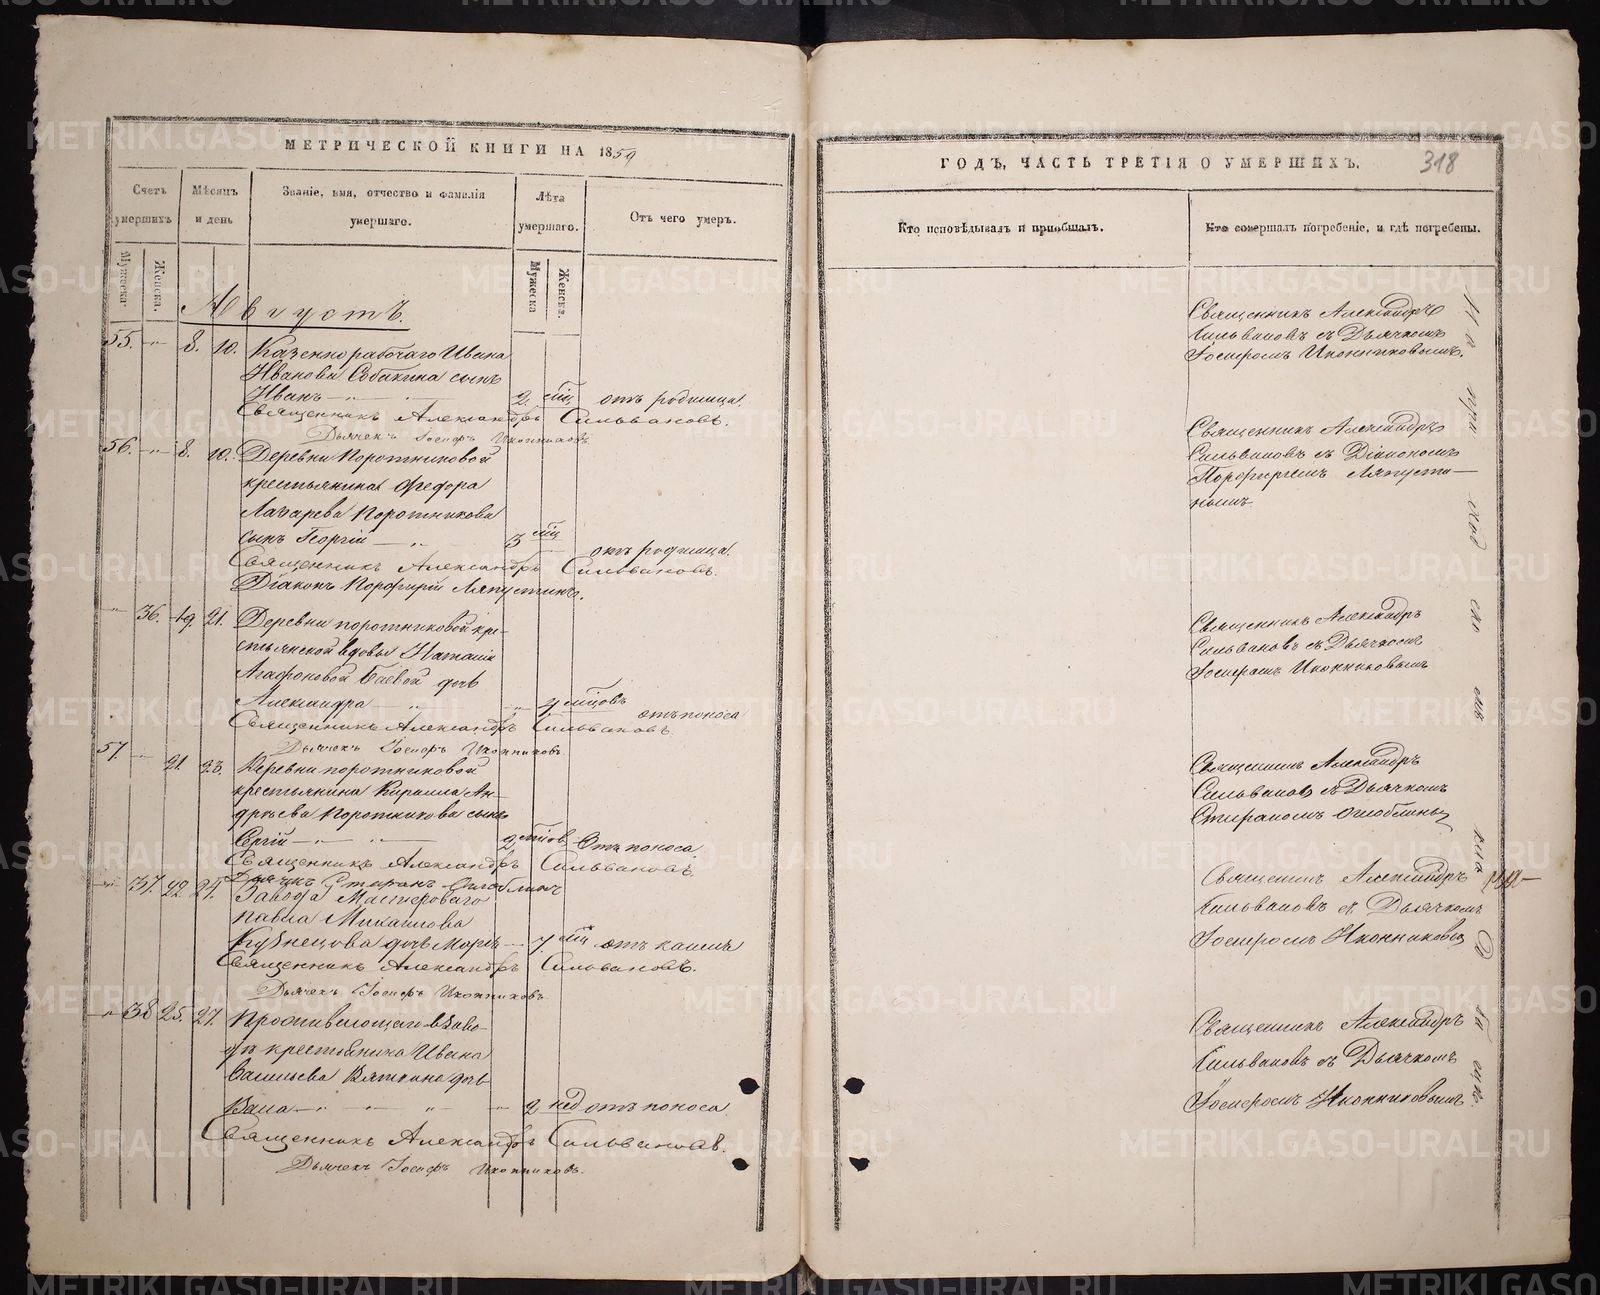 МЕТРИЧЕСКОЙ КНИГИ НА 1859
Счетъ умершихъ
Мѣсяцъ и день
Званіе, имя, отчество и фамилія умершаго.
Лѣта умершаго.
Отъ чего умеръ.
Мужеска.
Женска.
Мужеска
Женска.
Августъ.
55. 8. 10. Казеннорабочаго Ивана
Иванова Собакина сынъ
Иванъ 2. мц. отъ родимца.
Священникъ Александръ Сильвановъ.
Дьячекъ Іосифъ Иконниковъ.
56. 8. 10. Деревни Поротниковой
крестьянина Ѳедора
Лазарева Поротникова
сынъ Георгій 3 мц отъ родимца.
Священникъ Александръ Сильвановъ.
Діаконъ Порфирій Ляпустинъ.
36. 19. 21. Деревни поротниковой кре-
стьянской вдовы Наталіи
Агафоновой Баевой дочь
Александра 7 мцовъ отъ поноса
Священникъ Александръ Сильвановъ.
Дьячекъ Іосифъ Иконниковъ.
57. 21. 23. Деревни поротниковой
крестьянина Кирилла Ан-
дреева Поротникова сынъ
Сергій 2 мцов Отъ поноса.
Священникъ Александръ Сильвановъ.
Дьячкъ Стефанъ Оглоблинъ
37. 22 24. Завода Мастероваго
Павла Михаилова
Кузнецова дочь Марія 7. мц отъ кашля
Священникъ Александръ Сильвановъ.
Дьячекъ Іосифъ Иконниковъ.
38 25. 27. Проживающаго в Заво-
дѣ крестьянина Ивана
Васильева Вяткина дочь
2 нед отъ поноса
Священникъ Александръ Сильвановъ.
Дьячекъ Іосифъ Иконниковъ.
ГОДЪ, ЧАСТЬ ТРЕТІЯ О УМЕРШИХЪ.
318
Кто исповѣдывалъ и пріобщалъ.
Кто совершалъ погребеніе, и гдѣ погребены.
Священникъ Александръ
Сильвановъ съ Дьячкомъ
Іосифомъ Иконниковымъ.
Священникъ Александръ
Сильвановъ съ Діакономъ
Порфиріемъ Ляпусти-
нымъ.
Священникъ Александръ
Сильвановъ съ Дьячкомъ
Іосифомъ Иконниковымъ
Священникъ Александръ
Сильвановъ съ Дьячкомъ
Стефаномъ Оглоблины
Священникъ Александръ
Сильвановъ съ Дьячкомъ
Іосифомъ Иконниковы
Священникъ Александръ
Сильвановъ съ Дьячкомъ
Іосифомъ Иконниковымъ.
На при ход ско мъ
METRIKI.GASO-URAL.RU